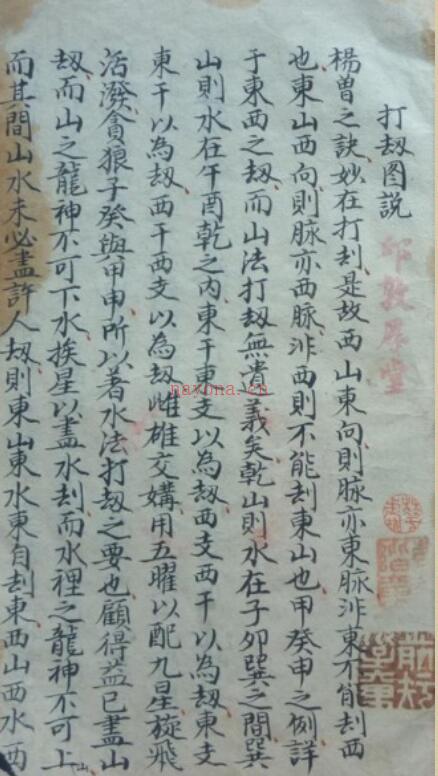 打刼图説
楊曽之訣妙在打刦是故西山東向則脉亦東脉非東不能刦西
也東山西向則脉亦西脉非西則不能刦東山也甲癸申之例詳
于東西之刼而山法打刼無賸義矣乾山則水在子卯巽之間巽
山則水在午酉乾之内東干東支以為刼西支西干以為刼東支
東干以為刼西干西支以為刼雌雄交媾用五曜以配九星旋飛
活潑貪狼子癸與甲申所以著水法打刼之要也顧得益已盡山
刼而山之龍神不可下水挨星以盡水刦而水裡之龍神不可上山
而其間山水未必盡許人刼則東山東水東自刦東西山西水西
nayona.cn